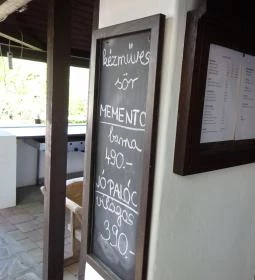 kézműves
sör
MEMENTO
barna
490.-
JÓ PALÓC
világos
390.-